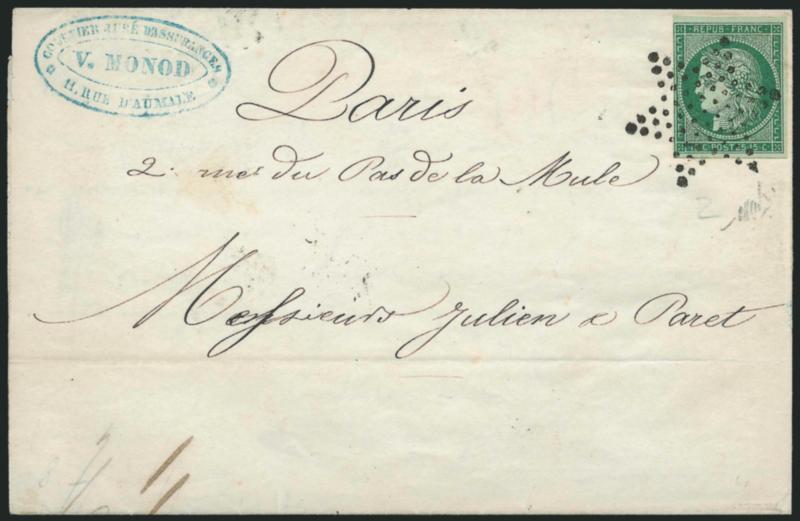 COURTIER JURÉ D'ASSURANCES
V. MONOD
11, RUE D'AUMALE
REPUB. FRANC.
15 C. POSTES 15 C.
Paris
2. rue du Pas de la Mule
2
Messieurs Julien & Paret